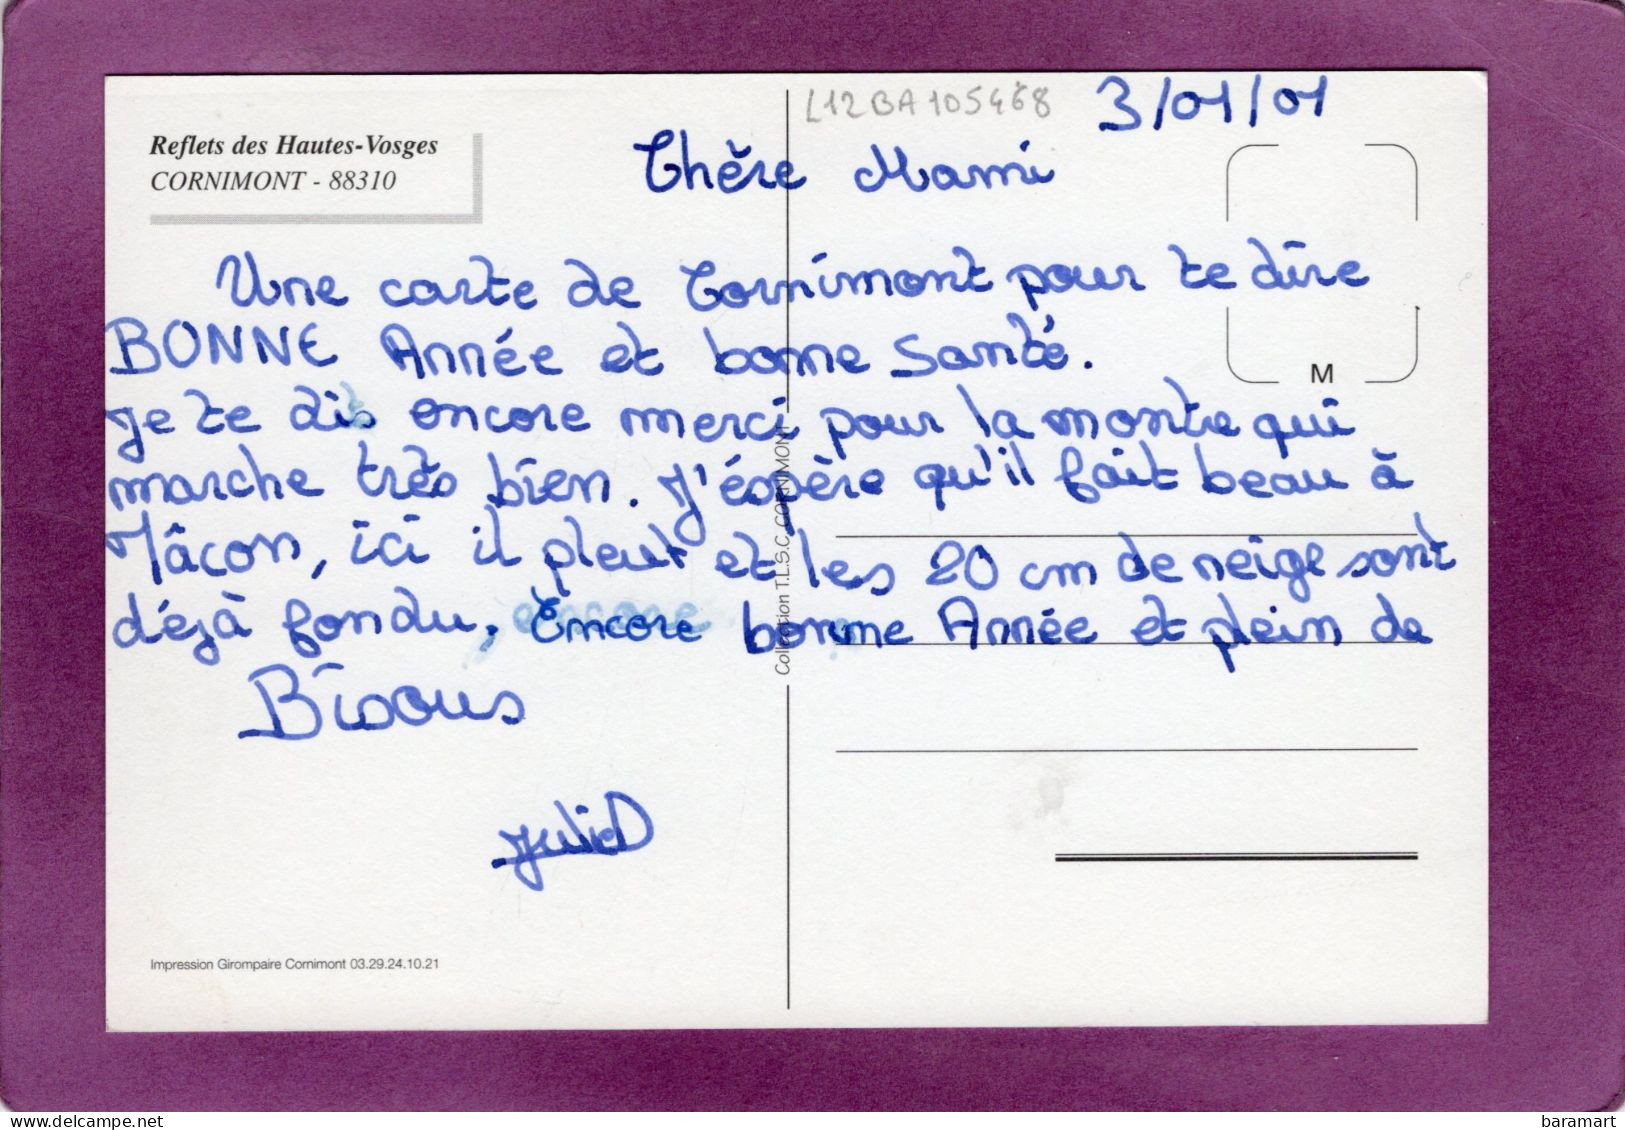 L12BA105468
3/01/01
Reflets des Hautes-Vosges
CORNIMONT - 88310
Chère Mami
Une carte de Cornimont pour te dire
BONNE Année et bonne Santé.
M
Je te dis encore merci pour la montre qui
marche très bien. J'éspère qu'il fait beau à
Mâcon, ici il pleut et les 20 cm de neige sont
déjà fondu. Encore bonne Année et plein de
Bisous
Collection T.L.S.C. CORNIMONT
Impression Girompaire Cornimont 03.29.24.10.21
delcampe.net
baramart